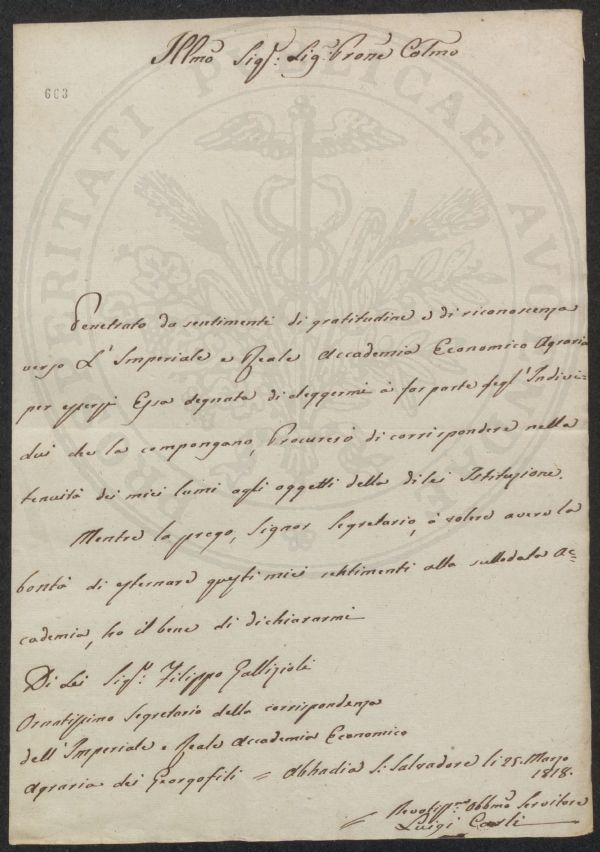 Illmo Sigr. Sigr. Prone Colmo
603
PROSPERITATI PUBLICAE AUGENDAE
Penetrato da sentimenti di gratitudine e di riconoscenza
verso L'Imperiale e Reale Accademia Economico Agraria
per essersi Essa degnata di eleggermi à far parte degl'Indivi=
dui che la compongano, Procurerò di corrispondere nella
tenuità dei miei lumi agli oggetti della di lei Istituzione.
Mentre la prego, Signor Segretario, à volere avere la
bontà di esternare questi miei sentimenti alla sullodata Ac=
cademia, ho il bene di dichiararmi
Di Lei Sigr. Filippo Gallizioli
Ornatissimo Segretario della corrispondenza
dell'Imperiale e Reale Accademia Economico
Agraria dei Georgofili = Abbadia S. Salvadore li 25. Marzo
1818.
Devotissmo Obbmo Servitore
Luigi